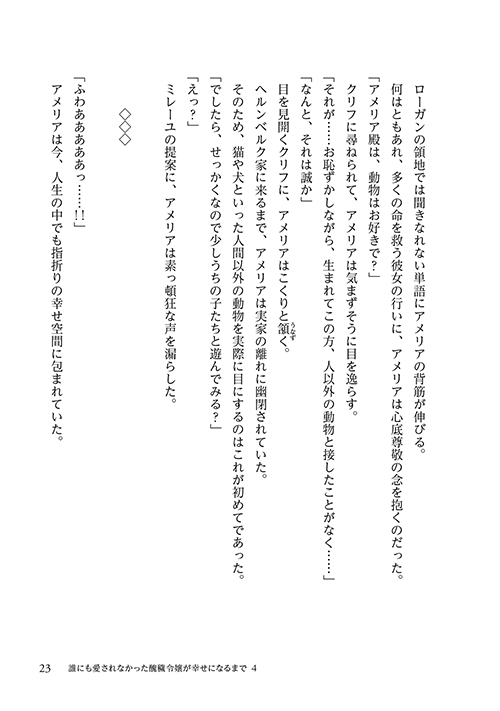 ローガンの領地では聞きなれない単語にアメリアの背筋が伸びる。
何はともあれ、多くの命を救う彼女の行いに、アメリアは心底尊敬の念を抱くのだった。
「アメリア殿は、動物はお好きで？」
クリフに尋ねられて、アメリアは気まずそうに目を逸らす。
「それが……お恥ずかしながら、生まれてこの方、人以外の動物と接したことがなく……」
「なんと、それは誠か」
目を見開くクリフに、アメリアはこくりと頷く。
うなず
ヘルンベルク家に来るまで、アメリアは実家の離れに幽閉されていた。
そのため、猫や犬といった人間以外の動物を実際に目にするのはこれが初めてであった。
「でしたら、せっかくなので少しうちの子たちと遊んでみる？」
「えっ？」
ミレーユの提案に、アメリアは素っ頓狂な声を漏らした。
◇◇◇
「ふわぁあああぁっ……!!」
アメリアは今、人生の中でも指折りの幸せ空間に包まれていた。
23 誰にも愛されなかった醜穢令嬢が幸せになるまで 4